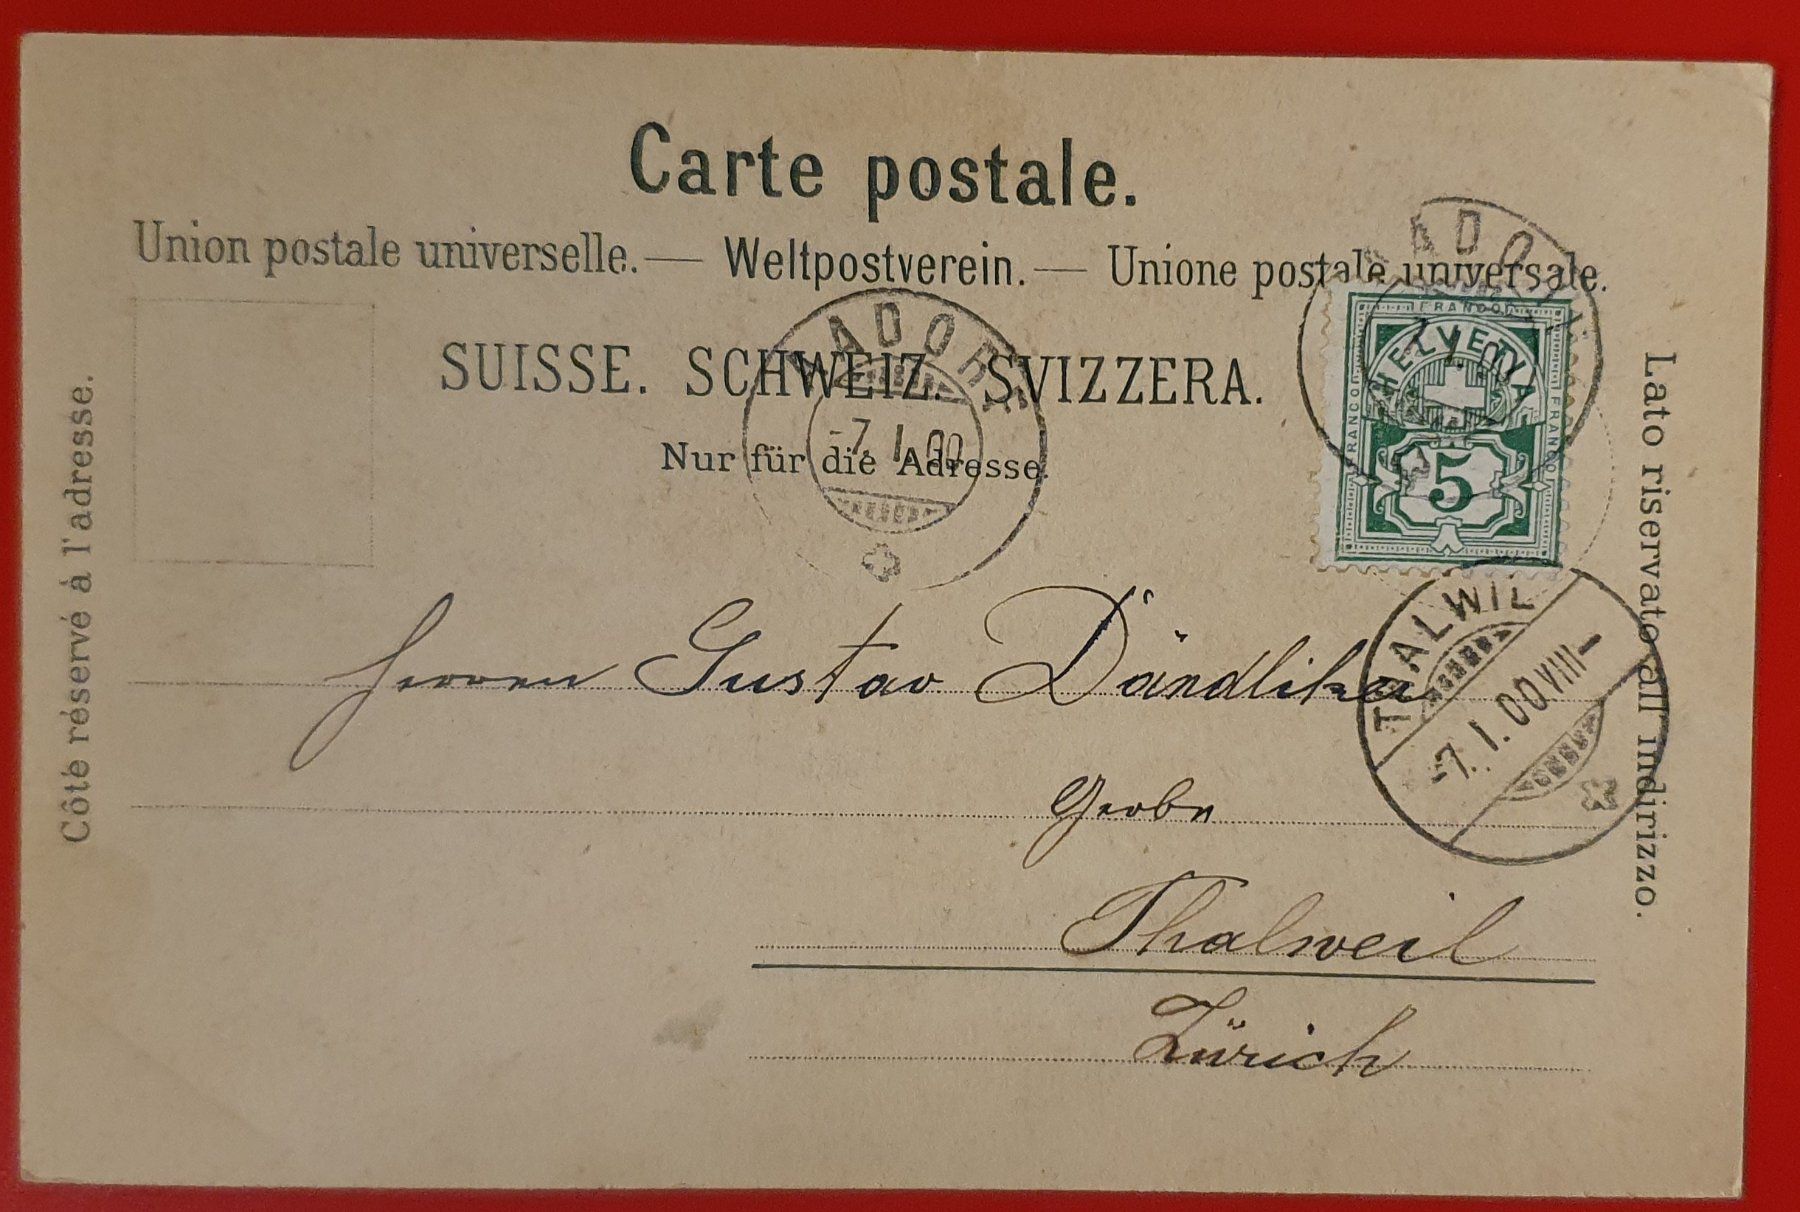 Carte postale.
Union postale universelle. — Weltpostverein. — Unione postale universale.
SUISSE. SCHWEIZ. SVIZZERA.
Nur für die Adresse.
Côté réservé á l'adresse.
Lato riservato all indirizzo.
AADORF
-7. I. 00
AADORF
FRANCO
FRANCO
FRANCO
HELVETIA
5
THALWIL
-7. I. 00 VIII-
Herren Gustav Dändliker
Gerbe
Thalweil
Zürich